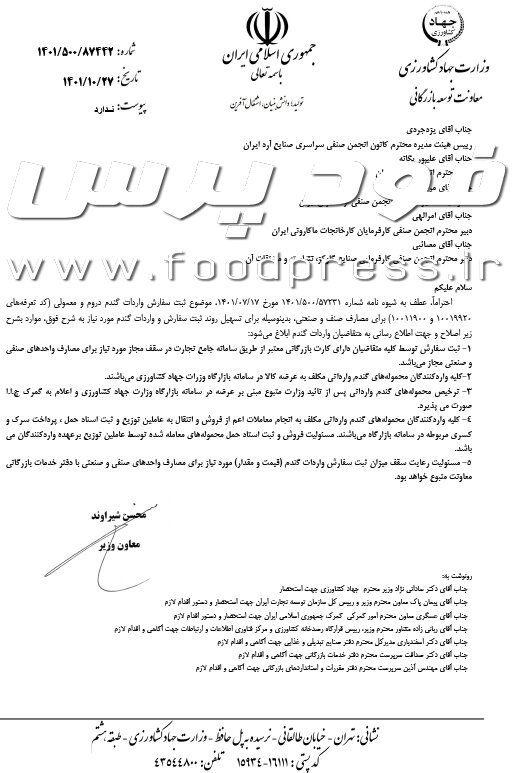 جهاد
کشاورزی
وزارت جهاد کشاورزی
معاونت توسعه بازرگانی
جمهوری اسلامی ایران
باسمه تعالی
تولید؛ دانش بنیان، اشتغال آفرین
شماره: ۱۴۰۱/۵۰۰/۸۷۴۴۲
تاریخ: ۱۴۰۱/۱۰/۲۷
پیوست: ندارد
جناب آقای یزدجردی
رییس هیئت مدیره محترم کانون انجمن صنفی سراسری صنایع آرد ایران
جناب آقای علیپور یگانه
فود پرس
www.foodpress.ir
انجمن صنفی
جناب آقای امرالهی
دبیر محترم انجمن صنفی کارفرمایان کارخانجات ماکارونی ایران
جناب آقای مصائبی
دبیر محترم انجمن صنفی کارفرمایی صنایع
سلام علیکم
احتراماً، عطف به شیوه نامه شماره ۱۴۰۱/۵۰۰/۵۷۲۳۱ مورخ ۱۴۰۱/۰۷/۱۷، موضوع ثبت سفارش واردات گندم دروم و معمولی (کد تعرفه‌های
۱۰۰۱۹۹۲۰ و ۱۰۰۱۱۹۰۰) برای مصارف صنف و صنعتی، بدینوسیله برای تسهیل روند ثبت سفارش و واردات گندم مورد نیاز به شرح فوق، موارد بشرح
زیر اصلاح و جهت اطلاع رسانی به متقاضیان واردات گندم ابلاغ می‌شود:
۱- ثبت سفارش توسط کلیه متقاضیان دارای کارت بازرگانی معتبر از طریق سامانه جامع تجارت در سقف مجاز مورد نیاز برای مصارف واحدهای صنفی
و صنعتی مجاز می‌باشد.
۲-کلیه واردکنندگان محموله‌های گندم وارداتی مکلف به عرضه کالا در سامانه بازارگاه وزرات جهاد کشاورزی می‌باشند.
۳- ترخیص محموله‌های گندم وارداتی پس از تائید وزارت متبوع مبنی بر عرضه در سامانه بازارگاه وزارت جهاد کشاورزی و اعلام به گمرک ج.ا.ا
صورت می پذیرد.
۴- کلیه واردکنندگان محموله‌های گندم وارداتی مکلف به انجام معاملات اعم از فروش و انتقال به عاملین توزیع و ثبت اسناد حمل ، پرداخت سرک و
کسری مربوطه در سامانه بازارگاه می‌باشند. مسئولیت فروش و ثبت اسناد حمل محموله‌های معامله شده توسط عاملین توزیع برعهده واردکنندگان می
باشد.
۵- مسئولیت رعایت سقف میزان ثبت سفارش واردات گندم (قیمت و مقدار) مورد نیاز برای مصارف واحدهای صنفی و صنعتی با دفتر خدمات بازرگانی
معاونت متبوع خواهد بود.
محسن شیراوند
معاون وزیر
رونوشت به:
جناب آقای دکتر ساداتی نژاد وزیر محترم جهاد کشاورزی جهت استحضار
جناب آقای پیمان پاک معاون محترم وزیر و رییس کل سازمان توسعه تجارت ایران جهت استحضار و دستور اقدام لازم
جناب آقای عسگری معاون محترم امور گمرکی گمرک جمهوری اسلامی ایران جهت استحضار و دستور اقدام لازم
جناب آقای ربانی زاده مشاور محترم وزیر، رییس قرارگاه رصدخانه کشاورزی و مرکز فناوری اطلاعات و ارتباطات جهت آگاهی و اقدام لازم
جناب آقای دکتر اسفندیاری مدیرکل محترم دفتر صنایع تبدیلی و غذایی جهت آگاهی و اقدام لازم
جناب آقای دکتر صداقت سرپرست محترم دفتر خدمات بازرگانی جهت آگاهی و اقدام لازم
جناب آقای مهندس آذین سرپرست محترم دفتر مقررات و استانداردهای بازرگانی جهت آگاهی و اقدام لازم
نشانی: تهران - خیابان طالقانی - نرسیده به پل حافظ - وزارت جهاد کشاورزی - طبقه هشتم
کد پستی: ۱۶۱۱۱-۱۵۹۳۴ تلفن: ۴۳۵۴۴۸۰۰